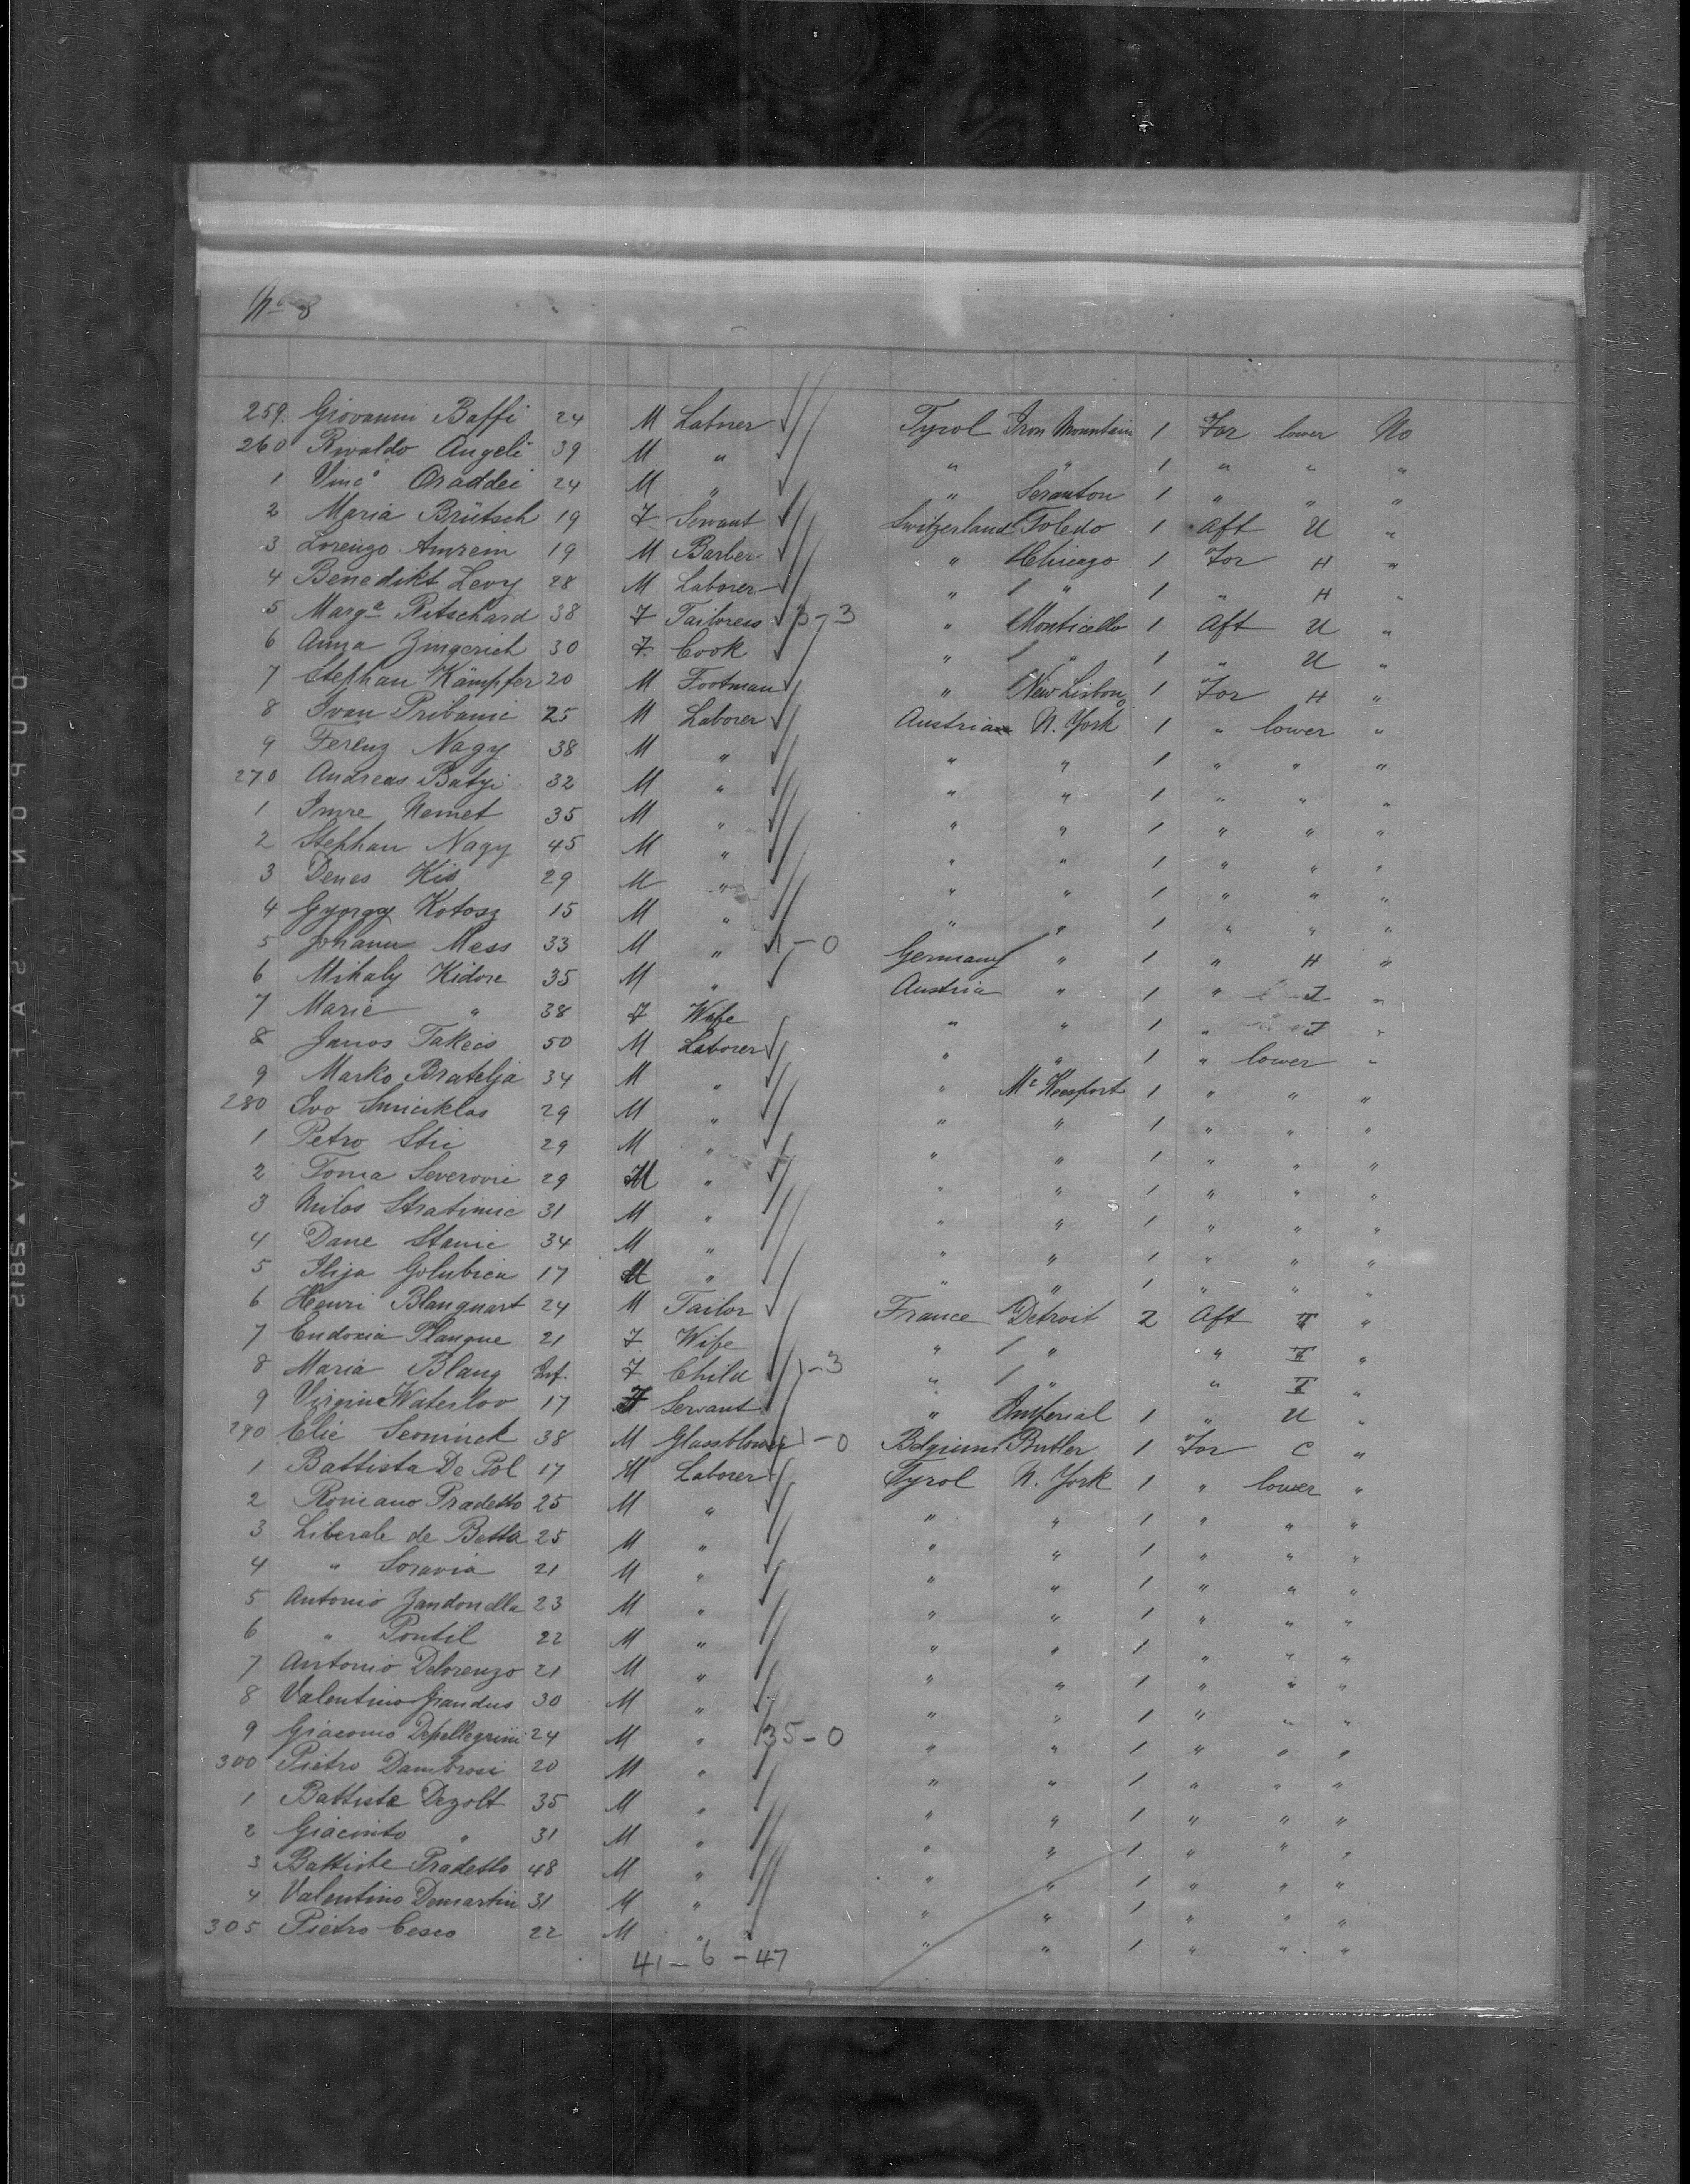 No 8
259. Giovanni Baffi 24 M Laborer Tyrol Iron Mountain 1 For lower No
260 Rivaldo Angeli 39 M " " " 1 " " "
1 Vinc° Oraddei 24 M " " Scranton 1 " " "
2 Maria Brütsch 19 F Servant Switzerland Toledo 1 Aft U "
3 Lorenzo Amrein 19 M Barber " Chicago 1 For H "
4 Benedikt Levy 28 M Laborer " " 1 " H "
5 Marga Ritschard 38 F Tailoress 3-3 " Monticello 1 Aft U "
6 Anna Zingerich 30 F Cook " " 1 " U "
7 Stephan Kämpfer 20 M Footman " New Lisbon 1 For H "
8 Ivan Pribanic 25 M Laborer Austria N. York 1 " lower "
9 Ferenz Nagy 38 M " " " 1 " " "
270 Andreas Batyi 32 M " " " 1 " " "
1 Imre Nemet 35 M " " " 1 " " "
2 Stephan Nagy 45 M " " " 1 " " "
3 Denes Kis 29 M " " " 1 " " "
4 Gyorgy Kotosz 15 M " " " 1 " " "
5 Johann Mess 33 M " 1-0 Germany " 1 " H "
6 Mihaly Kidore 35 M " Austria " 1 " "
7 Marie " 38 F Wife " " 1 " "
8 Janos Takacs 50 M Laborer " " 1 " lower "
9 Marko Bratelja 34 M " " Mc Keesport 1 " " "
280 Ivo Smiciklas 29 M " " " 1 " " "
1 Petro Stic 29 M " " " 1 " " "
2 Toma Severovic 29 M " " " 1 " " "
3 Milos Stratimic 31 M " " " 1 " " "
4 Dane Stanic 34 M " " " 1 " " "
5 Ilija Golubica 17 M " " " 1 " " "
6 Henri Blanquart 24 M Tailor France Detroit 2 Aft T "
7 Eudoxia Planque 21 F Wife " " " T "
8 Maria Blanq Inf. F Child 1-3 " " " T "
9 Virginie Waterloo 17 F Servant " Imperial 1 " U "
290 Elie Seoninck 38 M Glassblower 1-0 Belgium Butler 1 For C "
1 Battista De Pol 17 M Laborer Tyrol N. York 1 " lower "
2 Romano Pradetto 25 M " " " 1 " " "
3 Liberale de Betta 25 M " " " 1 " " "
4 " Soravia 21 M " " " 1 " " "
5 Antonio Zandonella 23 M " " " 1 " " "
6 " Pontil 22 M " " " 1 " " "
7 Antonio Delorenzo 21 M " " " 1 " " "
8 Valentino Grandus 30 M " " " 1 " " "
9 Giacomo Depellegrini 24 M " 35-0 " " 1 " " "
300 Pietro Dambrosi 20 M " " " 1 " " "
1 Battista Dezolt 35 M " " " 1 " " "
2 Giacinto " 31 M " " " 1 " " "
3 Battiste Pradetto 48 M " " " 1 " " "
4 Valentino Demartin 31 M " " " 1 " " "
305 Pietro Cesco 22 M " " " 1 " " "
41-6-47